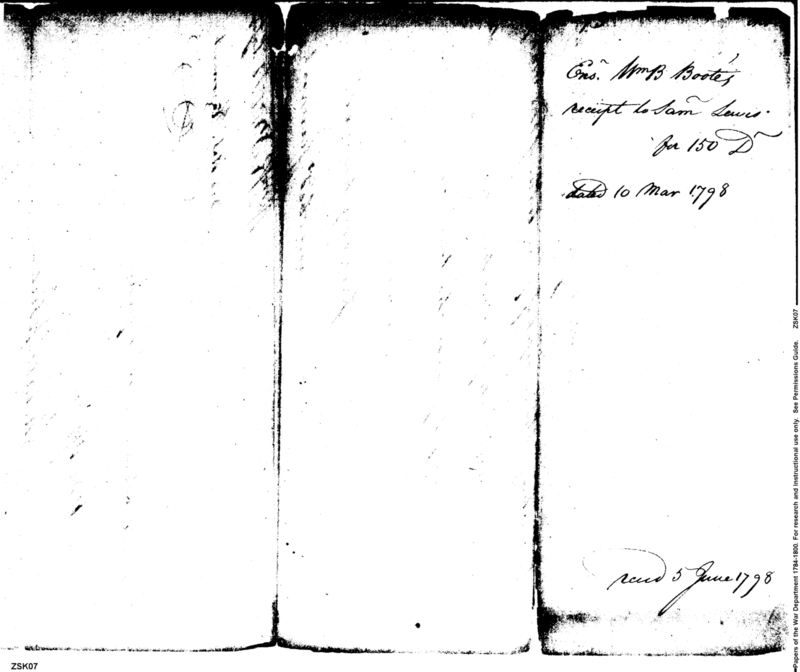 Ens. Wm B Boote's
receipt to Sam Lewis.
for 150 D
dated 10 Mar 1798
recd 5 June 1798
ZSK07
pers of the War Department 1784-1800. For research and instructional use only. See Permissions Guide. ZSK07